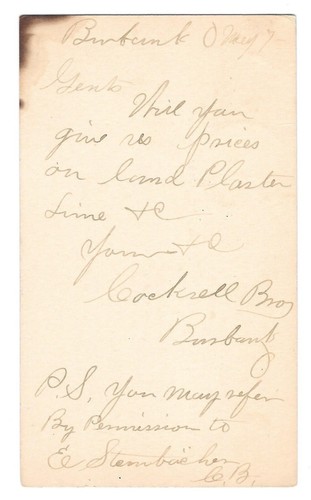 Burbank O May 7
Gents
Will you
give us prices
on Land Plaster
Lime &C
Yours &C
Cockrell Bros
Burbank
P.S. You may refer
By Permission to
E Steinbacher
C.B.